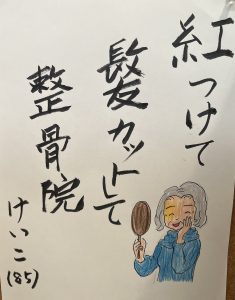 紅つけて
髪カットして
整骨院
けいこ(85)